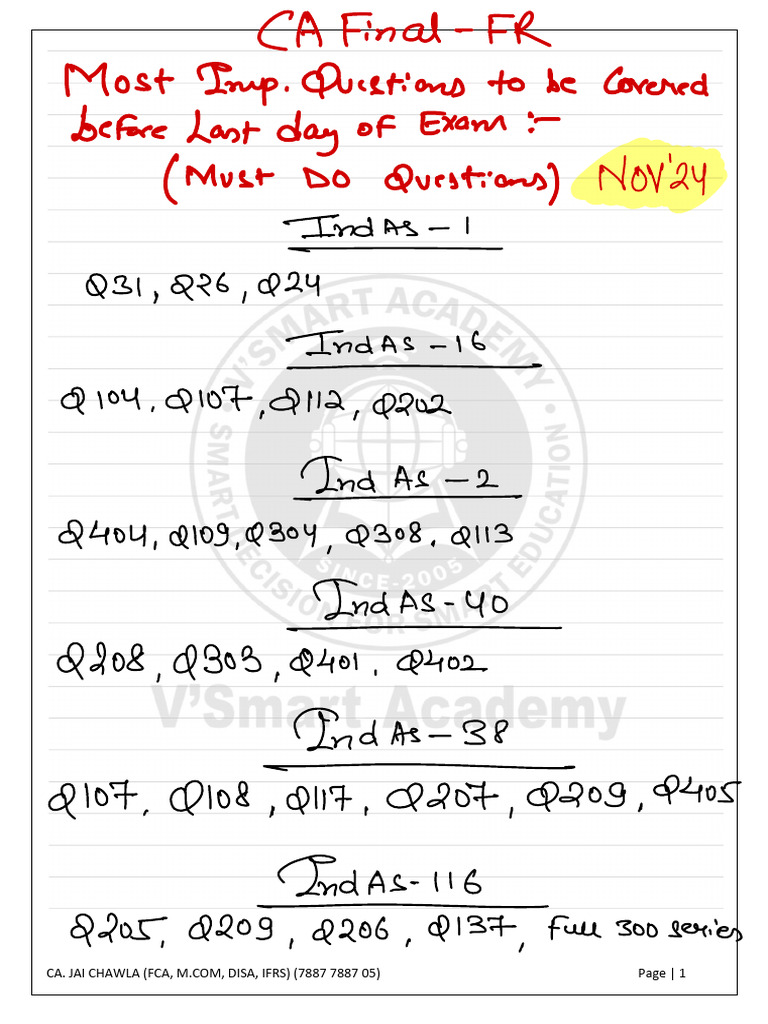 CA Final - FR
Most Imp. Questions to be Covered
before Last day of Exam :-
(Must Do Questions) NOV'24
Ind AS - 1
Q31, Q26, Q24
Ind AS - 16
Q104, Q107, Q112, Q202
Ind AS - 2
Q404, Q109, Q304, Q308, Q113
Ind AS - 40
Q208, Q303, Q401, Q402
Ind AS - 38
Q107, Q108, Q117, Q207, Q209, Q405
Ind AS - 116
Q205, Q209, Q206, Q137, Full 300 series
V'SMART ACADEMY
SMART DECISION FOR SMART EDUCATION
SINCE-2005
V'Smart Academy
CA. JAI CHAWLA (FCA, M.COM, DISA, IFRS) (7887 7887 05) Page | 1